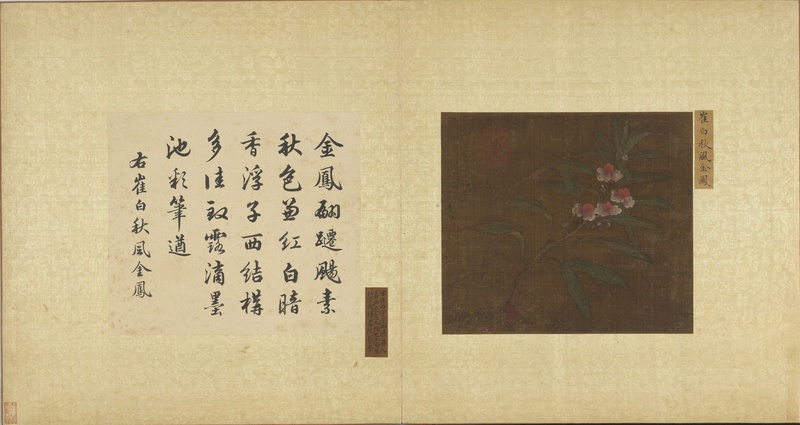 崔白秋風金鳳
金鳳翩躚颺素
秋色並紅白暗
香浮子西結構
多佳致露滴墨
池彩筆遒
右崔白秋風金鳳